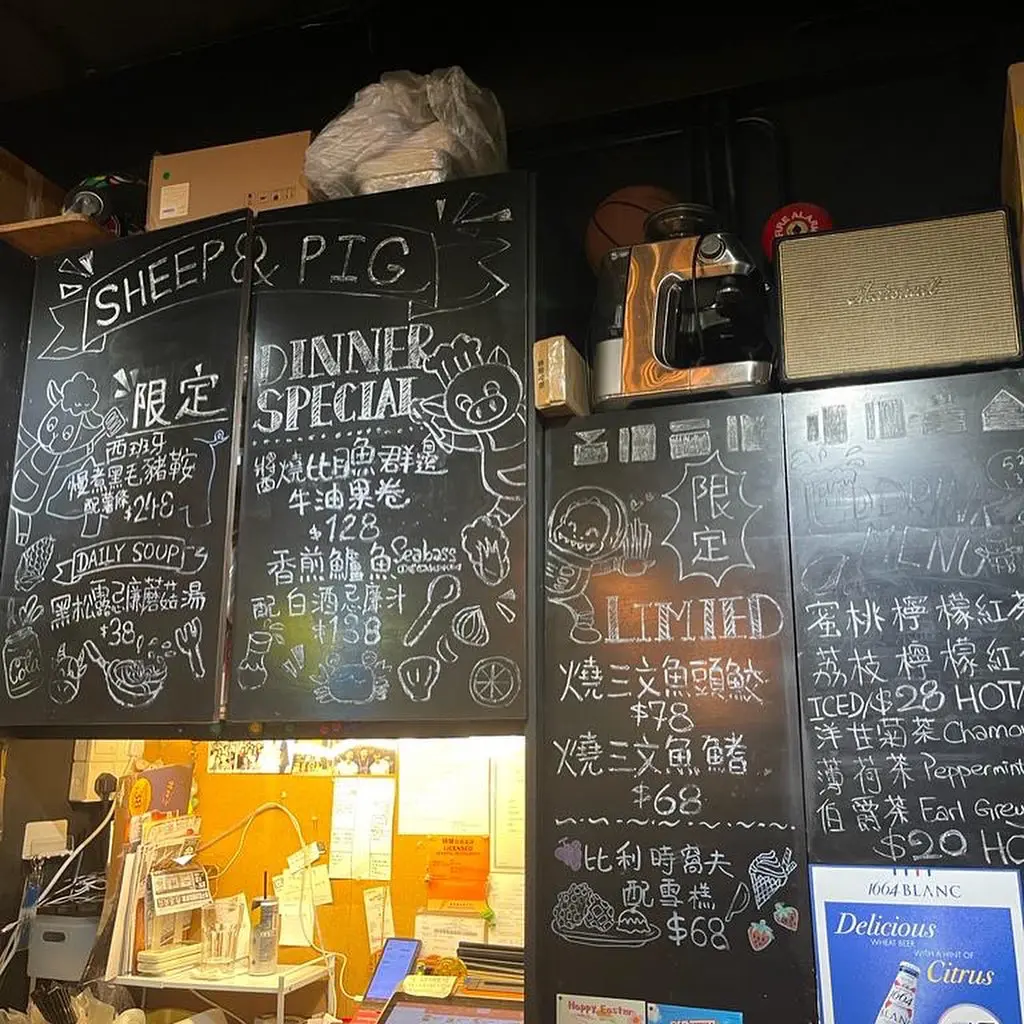 SHEEP & PIG
限定
西班牙
慢煮黑毛豬鞍
配薯條 $248
DAILY SOUP
黑松露忌廉蘑菇湯
$38
DINNER
SPECIAL
醬燒比目魚群邊
牛油果卷
$128
香煎鱸魚 Seabass
配白酒忌廉汁
$138
限定
LIMITED
燒三文魚頭鮫
$78
燒三文魚鰭
$68
比利時窩夫
配雪糕
$68
DRINK
MENU
蜜桃檸檬紅茶
荔枝檸檬紅
ICED/$28 HOT/
洋甘菊茶 Chamo
薄荷茶 Peppermint
伯爵茶 Earl Grey
$20 HO
Marshall
FIRE ALARM
1664 BLANC
Delicious
WHEAT BEER
WITH A HINT OF
Citrus
Happy Easter
LICENSED